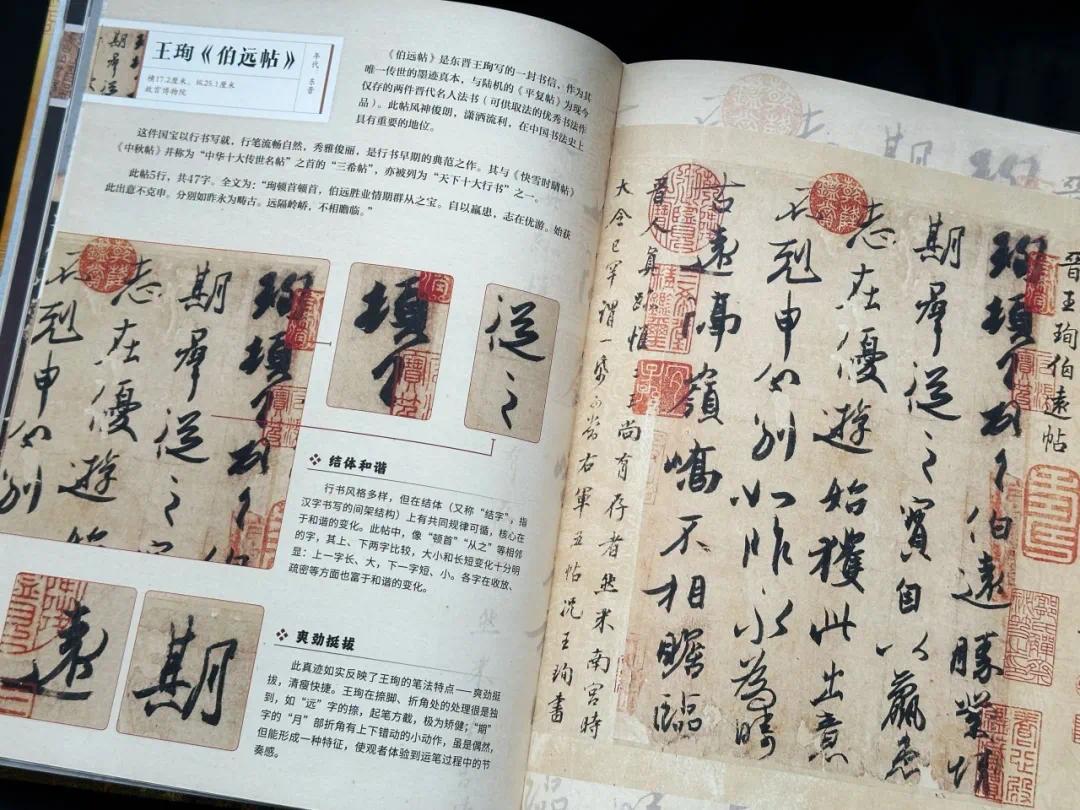 王珣《伯远帖》
横17.2厘米，纵25.1厘米
故宫博物院
年代 东晋
《伯远帖》是东晋王珣写的一封书信，作为其
唯一传世的墨迹真本，与陆机的《平复帖》为现今
仅存的两件晋代名人法书（可供取法的优秀书法作
品）。此帖风神俊朗，潇洒流利，在中国书法史上
具有重要的地位。
这件国宝以行书写就，行笔流畅自然，秀雅俊丽，是行书早期的典范之作。其与《快雪时晴帖》
《中秋帖》并称为“中华十大传世名帖”之首的“三希帖”，亦被列为“天下十大行书”之一。
此帖5行，共47字。全文为：“珣顿首顿首，伯远胜业情期群从之宝。自以羸患，志在优游。始获
此出意不克申。分别如昨永为畴古。远隔岭峤，不相瞻临。”
结体和谐
行书风格多样，但在结体（又称“结字”，指
汉字书写的间架结构）上有共同规律可循，核心在
于和谐的变化。此帖中，像“顿首”“从之”等相邻
的字，其上、下两字比较，大小和长短变化十分明
显：上一字长、大，下一字短、小。各字在收放、
疏密等方面也富于和谐的变化。
爽劲挺拔
此真迹如实反映了王珣的笔法特点——爽劲挺
拔，清瘦快捷。王珣在捺脚、折角处的处理很是独
到，如“远”字的捺，起笔方截，极为矫健；“期”
字的“月”部折角有上下错动的小动作，虽是偶然，
但能形成一种特征，使观者体验到运笔过程中的节
奏感。
頓首
從之
遠
期
晉王珣伯遠帖
珣頓首頓首伯遠勝業情
期群從之寶自以羸患
志在優遊始獲此出意
不剋申分別如昨永為疇
古遠隔嶺嶠不相瞻臨
晉人真跡惟二王尚有存者然米南宮時
大令已罕謂一紙可當右軍五帖況王珣書